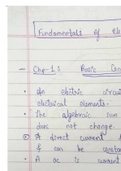 Fundamentals of El
Chp-1.1 Basic Con
An eletric circui
electrical elements.
the algebraic sum
does not change.
A direct current
& can be
A ac is current